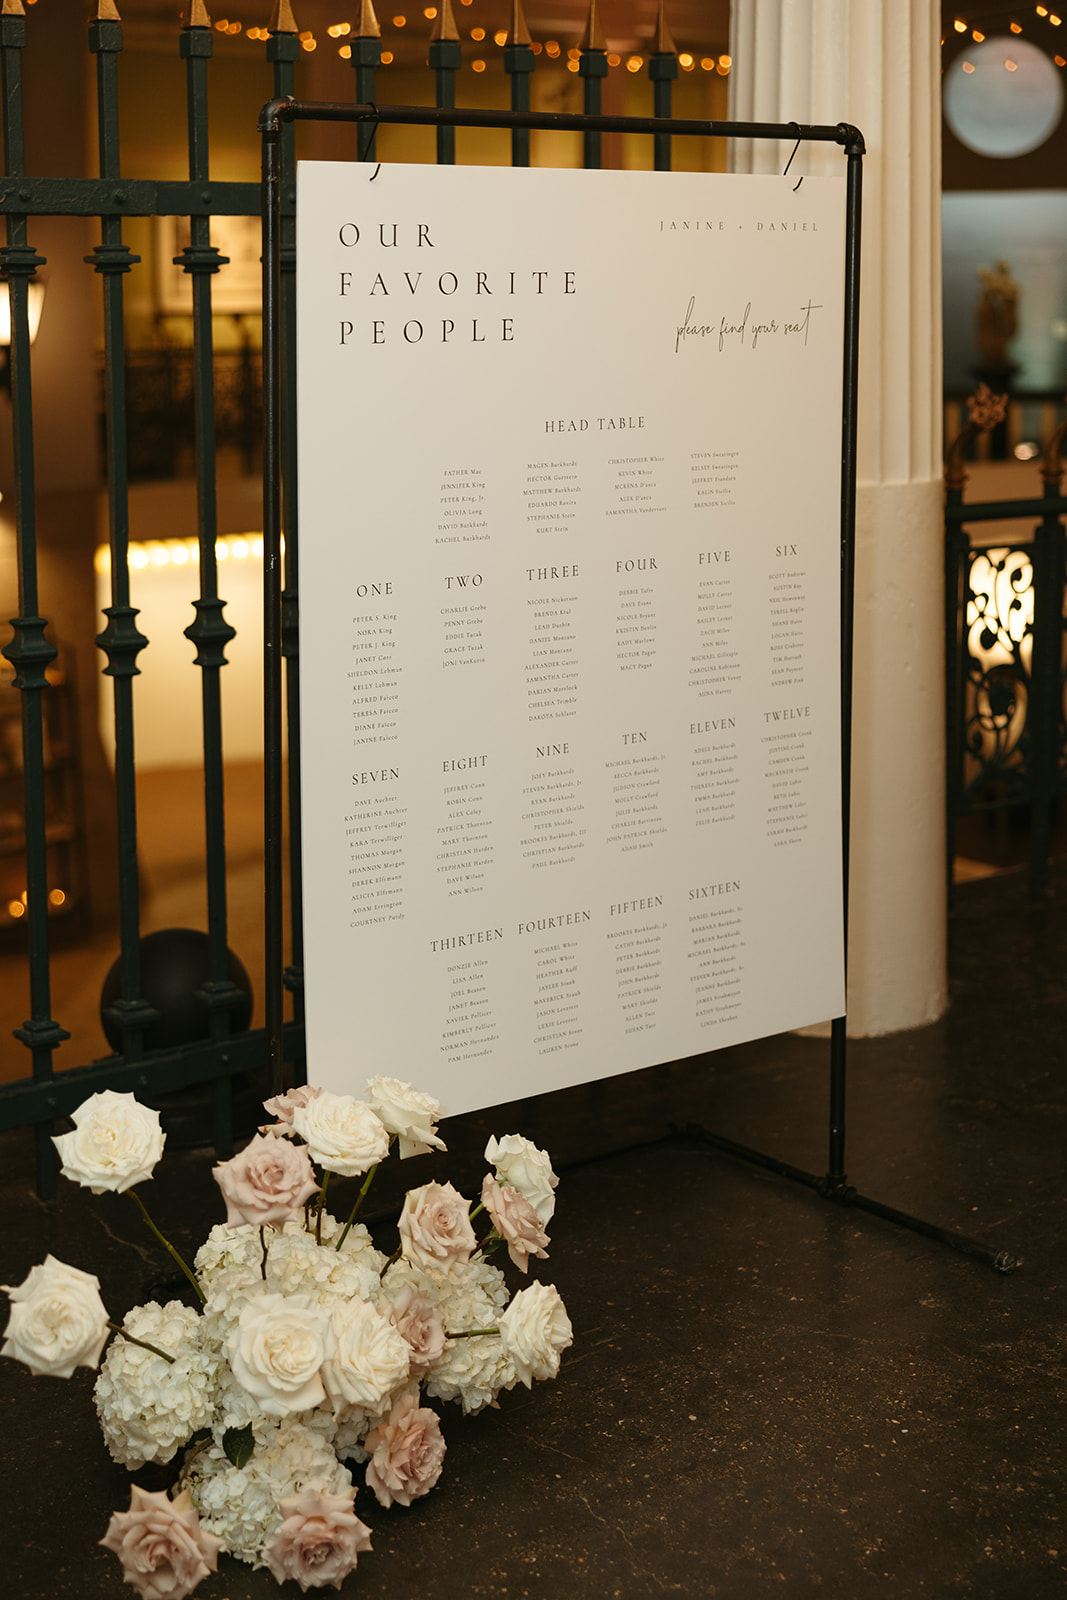 OUR
FAVORITE
PEOPLE
JANINE + DANIEL
please find your seat
HEAD TABLE
FATHER Mac
JENNIFER King
PETER King, Jr.
OLIVIA Long
DAVID Burkhardt
RACHEL Burkhardt
MAGEN Burkhardt
HECTOR Guerrero
MATTHEW Burkhardt
EDUARDO Rovira
STEPHANIE Stein
KURT Stein
CHRISTOPHER White
KEVIN White
MCKENA D'anca
ALEX D'anca
SAMANTHA
STEVEN Swearingen
KELSEY Swearingen
JEFFREY
KALIN Sicilia
BRENDEN Sicilia
ONE
PETER S. King
NORA King
PETER J. King
JANET Corr
SHELDON Lehman
KELLY Lehman
ALFRED Faiceo
TERESA Faiceo
DIANE Faiceo
JANINE Faiceo
TWO
CHARLIE Grebe
PENNY Grebe
EDDIE Turak
GRACE Turak
JONI VanKorin
THREE
NICOLE Nickerson
BRENDA Kral
LEAH Durbin
DANIEL Montano
LIAN Montano
ALEXANDER Carter
SAMANTHA Carter
DARIAN Morelock
CHELSEA Trimble
DAKOTA Schlarer
FOUR
DEBBIE Tufts
DAVE Evans
NICOLE Bryant
KRISTIN Devlin
KADY Marlowe
HECTOR Pagan
MACY Pagan
FIVE
EVAN Carter
MOLLY Carter
DAVID Lerner
BAILEY Lerner
ZACH Miles
ANN Miles
MICHAEL Gillespin
CAROLINE Robinson
CHRISTOPHER Veney
AUNA Harvey
SIX
SCOTT Andrews
AUSTIN Ray
NEIL Hemenway
TERELL Raglin
SHANE Haits
LOGAN Haits
ROSS Crabtree
TIM Horvath
SEAN Paynter
ANDREW Utak
SEVEN
DAVE Auchter
KATHERINE Auchter
JEFFREY Terwilliger
KARA Terwilliger
THOMAS Morgan
SHANNON Morgan
DEREK Elfsmann
ALICIA Elfsmann
ADAM Errington
COURTNEY Purdy
EIGHT
JEFFREY Conn
ROBIN Conn
ALEX Coley
PATRICK Thornton
MARY Thornton
CHRISTIAN Harden
STEPHANIE Harden
DAVE Wilson
ANN Wilson
NINE
JOEY Burkhardt
STEVEN Burkhardt, Jr.
RYAN Burkhardt
CHRISTOPHER Shields
PETER Shields
BROOKES Burkhardt, III
CHRISTIAN Burkhardt
PAUL Burkhardt
TEN
MICHAEL Burkhardt, Jr.
BECCA Burkhardt
JUDSON Crawford
MOLLY Crawford
JULIE Burkhardt
CHARLIE Barrineau
JOHN PATRICK Shields
ADAM Smith
ELEVEN
ADELE Burkhardt
RACHEL Burkhardt
AMY Burkhardt
THERESA Burkhardt
EMMA Burkhardt
LEAH Burkhardt
ZELIE Burkhardt
TWELVE
CHRISTOPHER Cronk
JUSTINE Cronk
CAMDEN Cronk
MACKENZIE Cronk
DAVID Lahr
BETH Lahr
MATTHEW Lahr
STEPHANIE Lahr
SARAH Burkhardt
SARA
THIRTEEN
DONZIE Allen
LISA Allen
JOEL Beason
JANET Beason
XAVIER Pellicer
KIMBERLY Pellicer
NORMAN Hernandez
PAM Hernandez
FOURTEEN
MICHAEL White
CAROL White
HEATHER Raff
JAYLEE Staub
MAVERICK Staub
JASON Leverett
LEXIE Leverett
CHRISTIAN Stone
LAUREN Stone
FIFTEEN
BROOKES Burkhardt, Jr.
CATHY Burkhardt
PETER Burkhardt
DEBBIE Burkhardt
JOHN Burkhardt
PATRICK Shields
MARY Shields
ALLEN Turi
SUSAN Turi
SIXTEEN
DANIEL Burkhardt, Sr.
BARBARA Burkhardt
MARIAN Burkhardt
MICHAEL Burkhardt, Sr.
ANN Burkhardt
STEVEN Burkhardt, Sr.
JEANNE Burkhardt
JAMES Strohmeyer
KATHY Strohmeyer
LINDA Sheehan